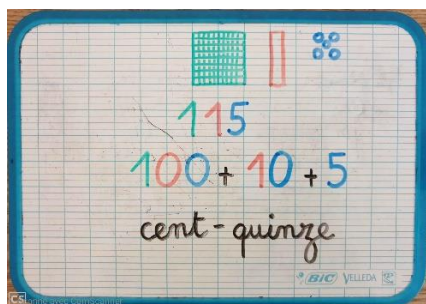 115
100 + 10 + 5
cent-quinze
BIC VELLEDA
CS